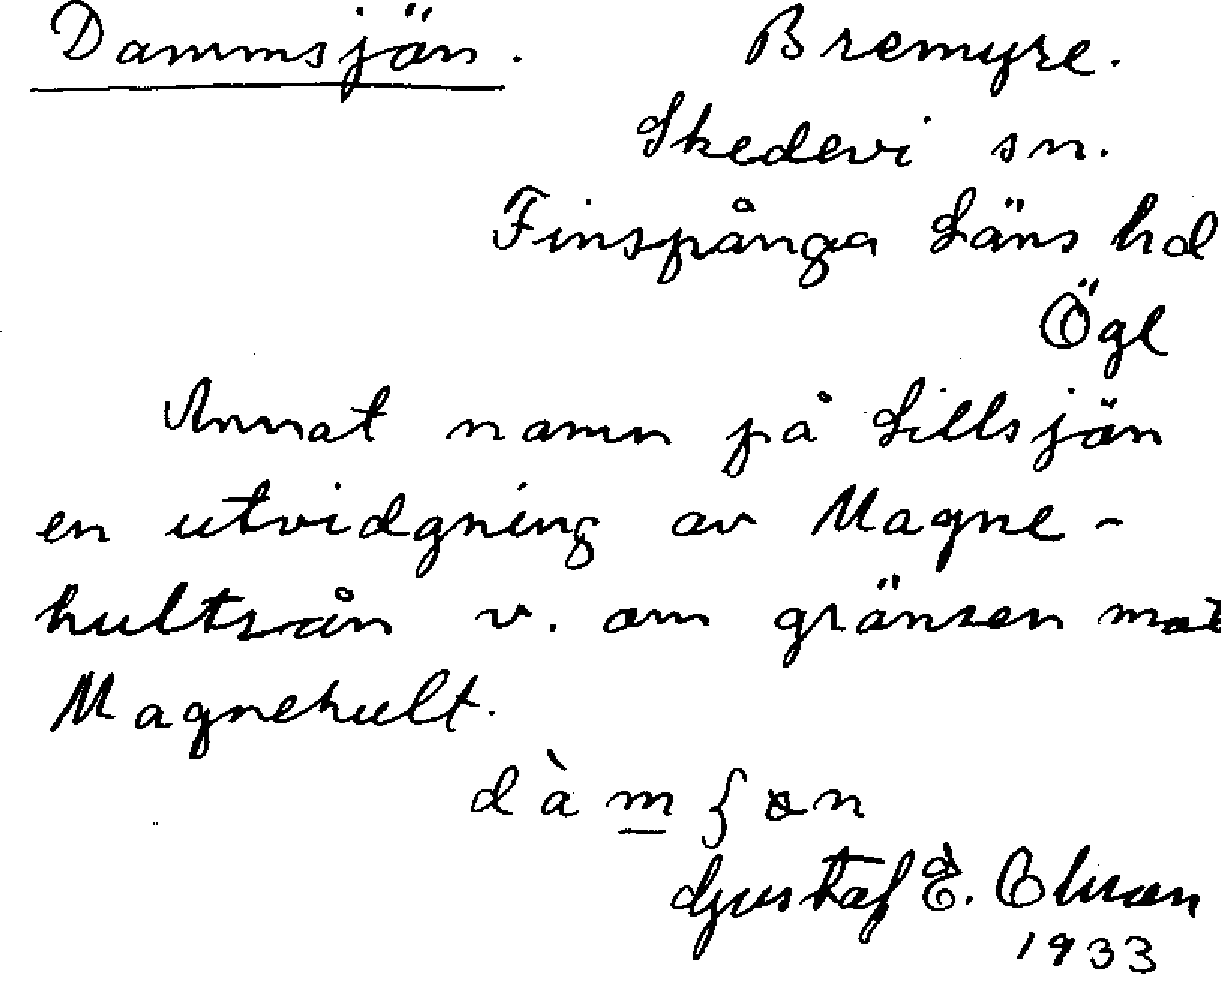 Dammsjön. Bremyre.
Skedevi sn.
Finspånga Läns hd
Ögl
Annat namn på Lillsjön
en utvidgning av Magne-
hultsån v. om gränsen mot
Magnehult.
dàm̲ʃɵn
Gustaf E.
1933